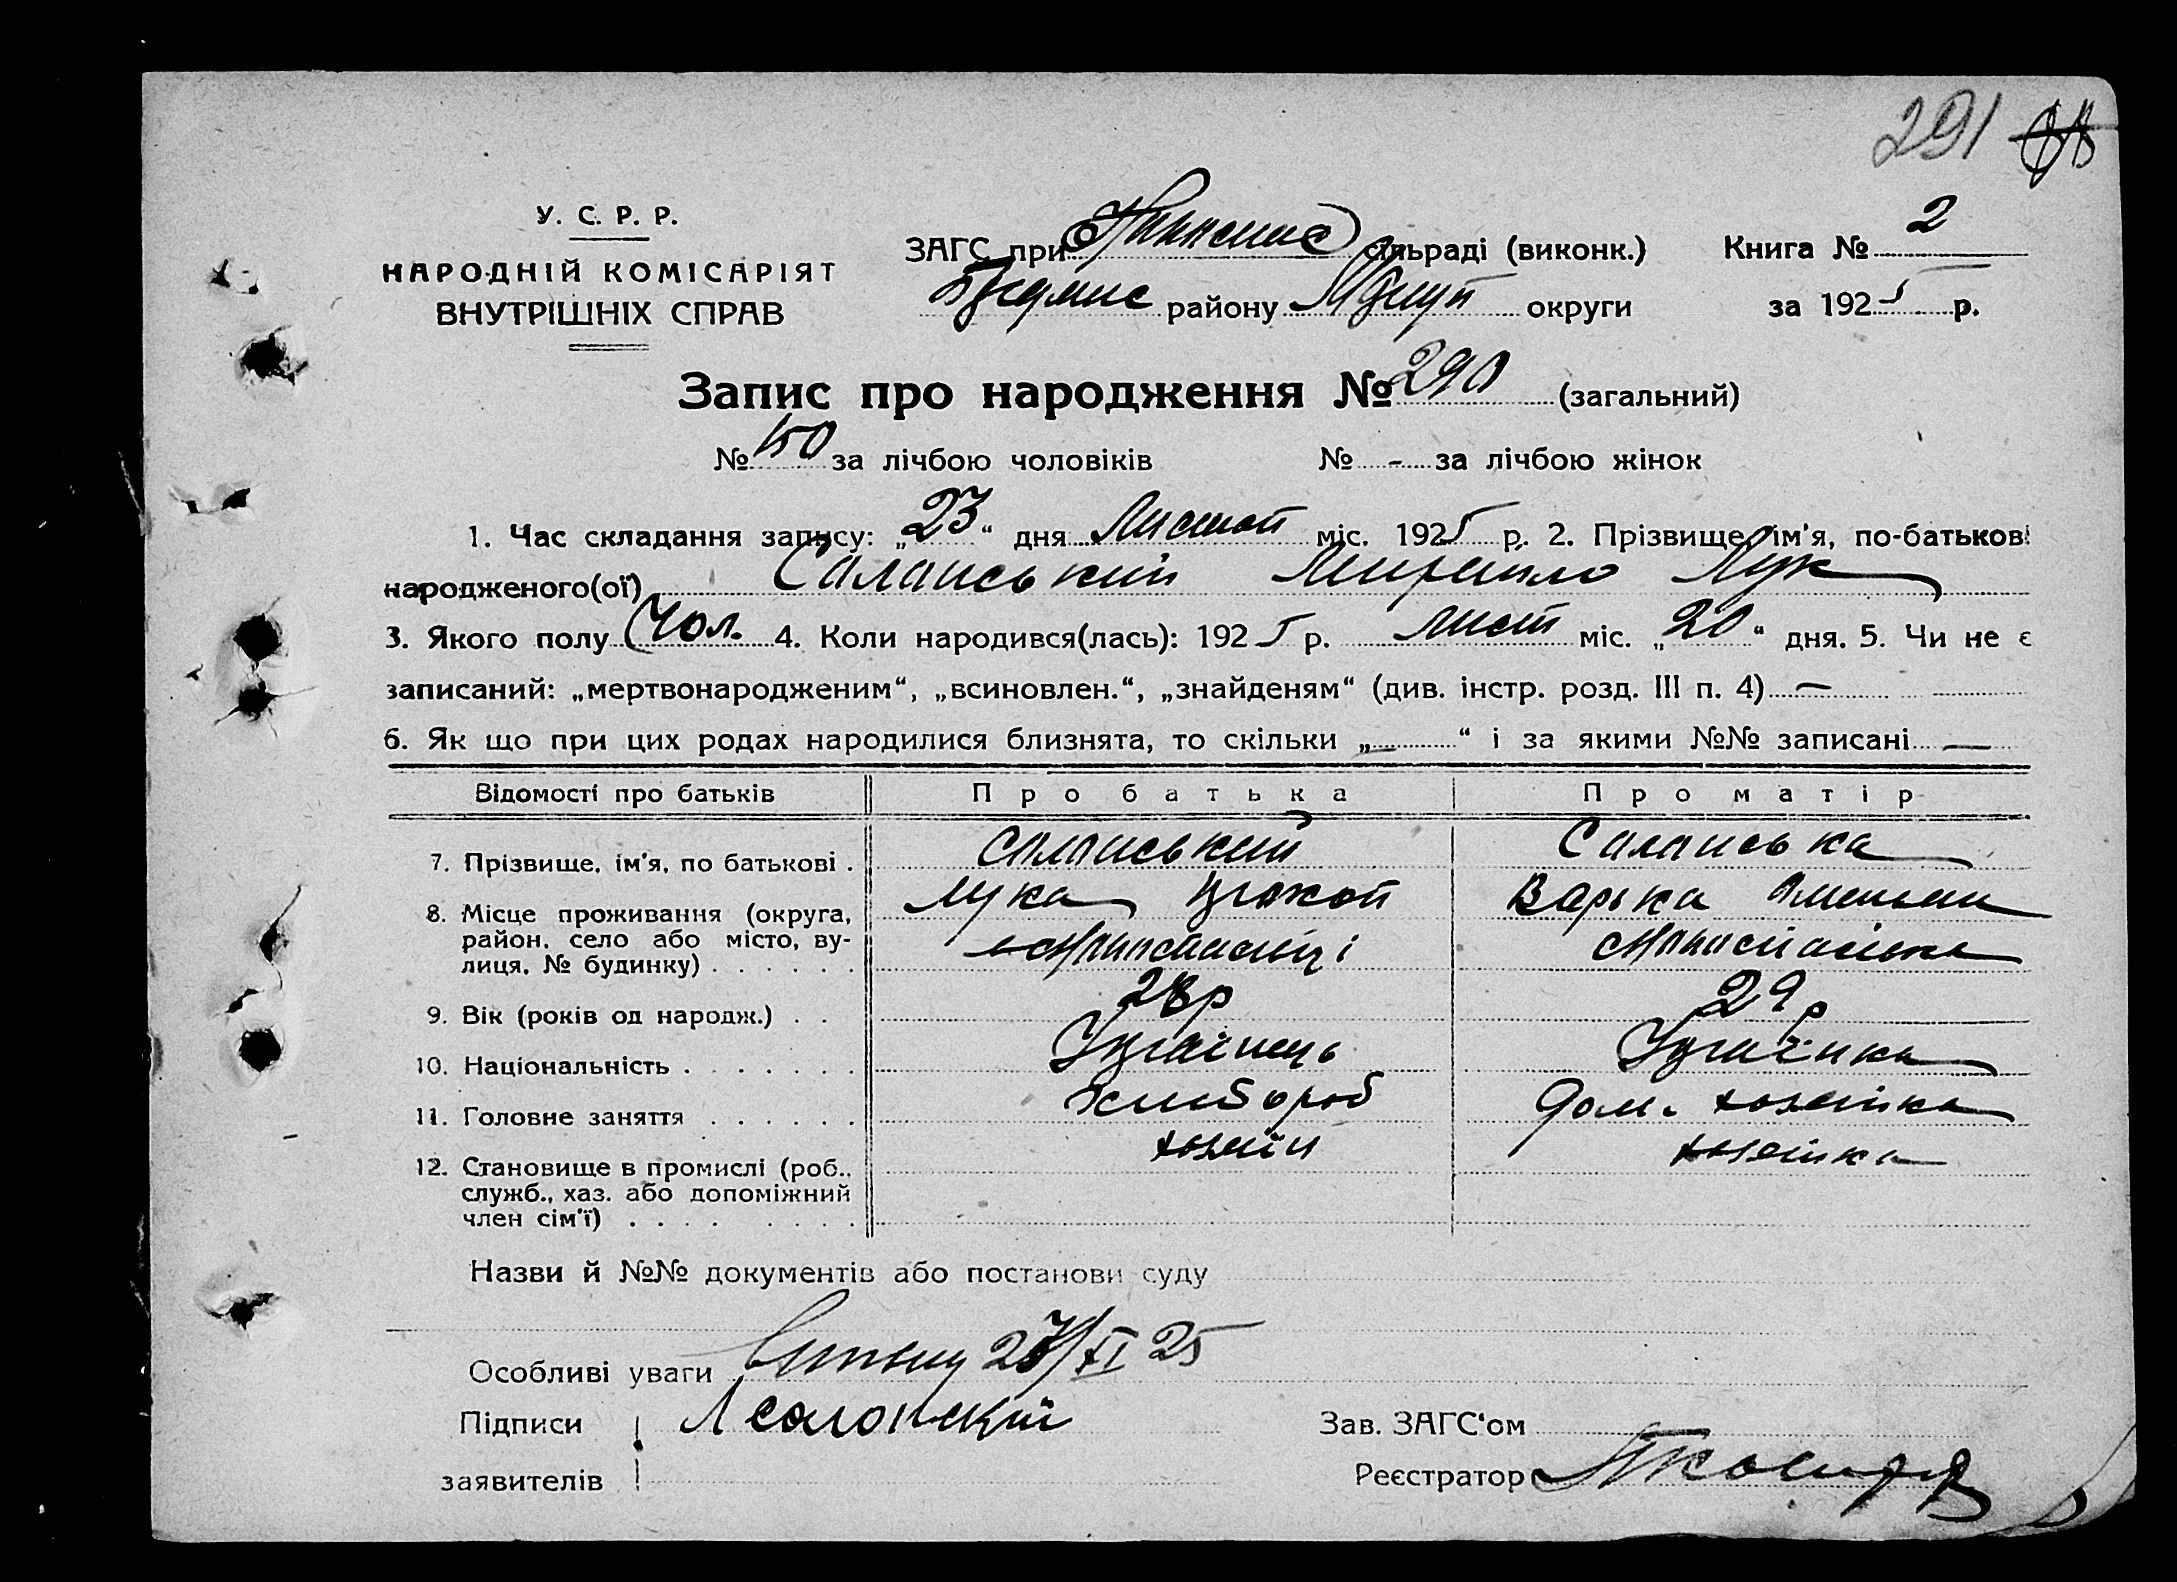 291
У. С. Р. Р.
НАРОДНІЙ КОМІСАРІЯТ
ВНУТРІШНІХ СПРАВ
ЗАГС при сільраді (виконк.)
Книга № 2
району округи
за 1925 р.
Запис про народження № 290 (загальний)
№ 150 за лічбою чоловіків № - за лічбою жінок
1. Час складання запису: „23“ дня Листоп міс. 1925 р. 2. Прізвище, ім'я, по-батькові
народженого(ої) Салонський Михайло Лук
3. Якого полу Чол. 4. Коли народився(лась): 1925 р. лист міс. „20“ дня. 5. Чи не є
записаний: „мертвонародженим“, „всиновлен.“, „знайденям“ (див. інстр. розд. III п. 4) —
6. Як що при цих родах народилися близнята, то скільки „—“ і за якими №№ записані —
Відомості про батьків Про батька Про матір
7. Прізвище, ім'я, по батькові . Салонський Салонська
Лука Варька
8. Місце проживання (округа,
район, село або місто, ву-
лиця, № будинку) . . . . . .
9. Вік (років од народж.) . . 28р 29р
10. Національність . . . . . . . Українець Українка
11. Головне заняття . . . . . . Хлібороб дом. хозяйка
12. Становище в промислі (роб., хозяїн хозяйка
служб., хаз. або допоміжний
член сім'ї) . . . . . . . .
Назви й №№ документів або постанови суду
Особливі уваги 27/XI 25
Підписи Л Салонский
заявителів
Зав. ЗАГС'ом
Реєстратор